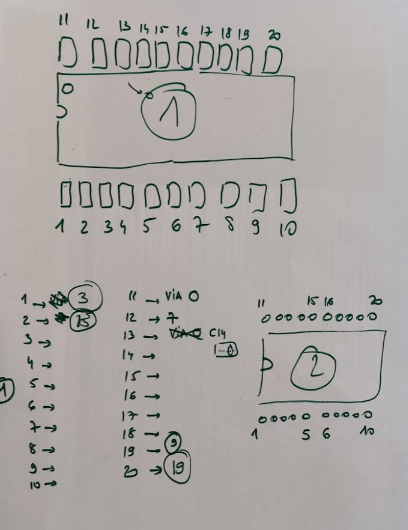 11 12 13 14 15 16 17 18 19 20
1
1 2 3 4 5 6 7 8 9 10
1 → 3
2 → 15
3 →
4 →
5 →
6 →
7 →
8 →
9 →
10 →
1
11 → VIA O
12 → 7
13 → VIA O C14
14 →
15 →
16 →
17 →
18 →
19 → 9
20 → 19
11 15 16 20
2
1 5 6 10